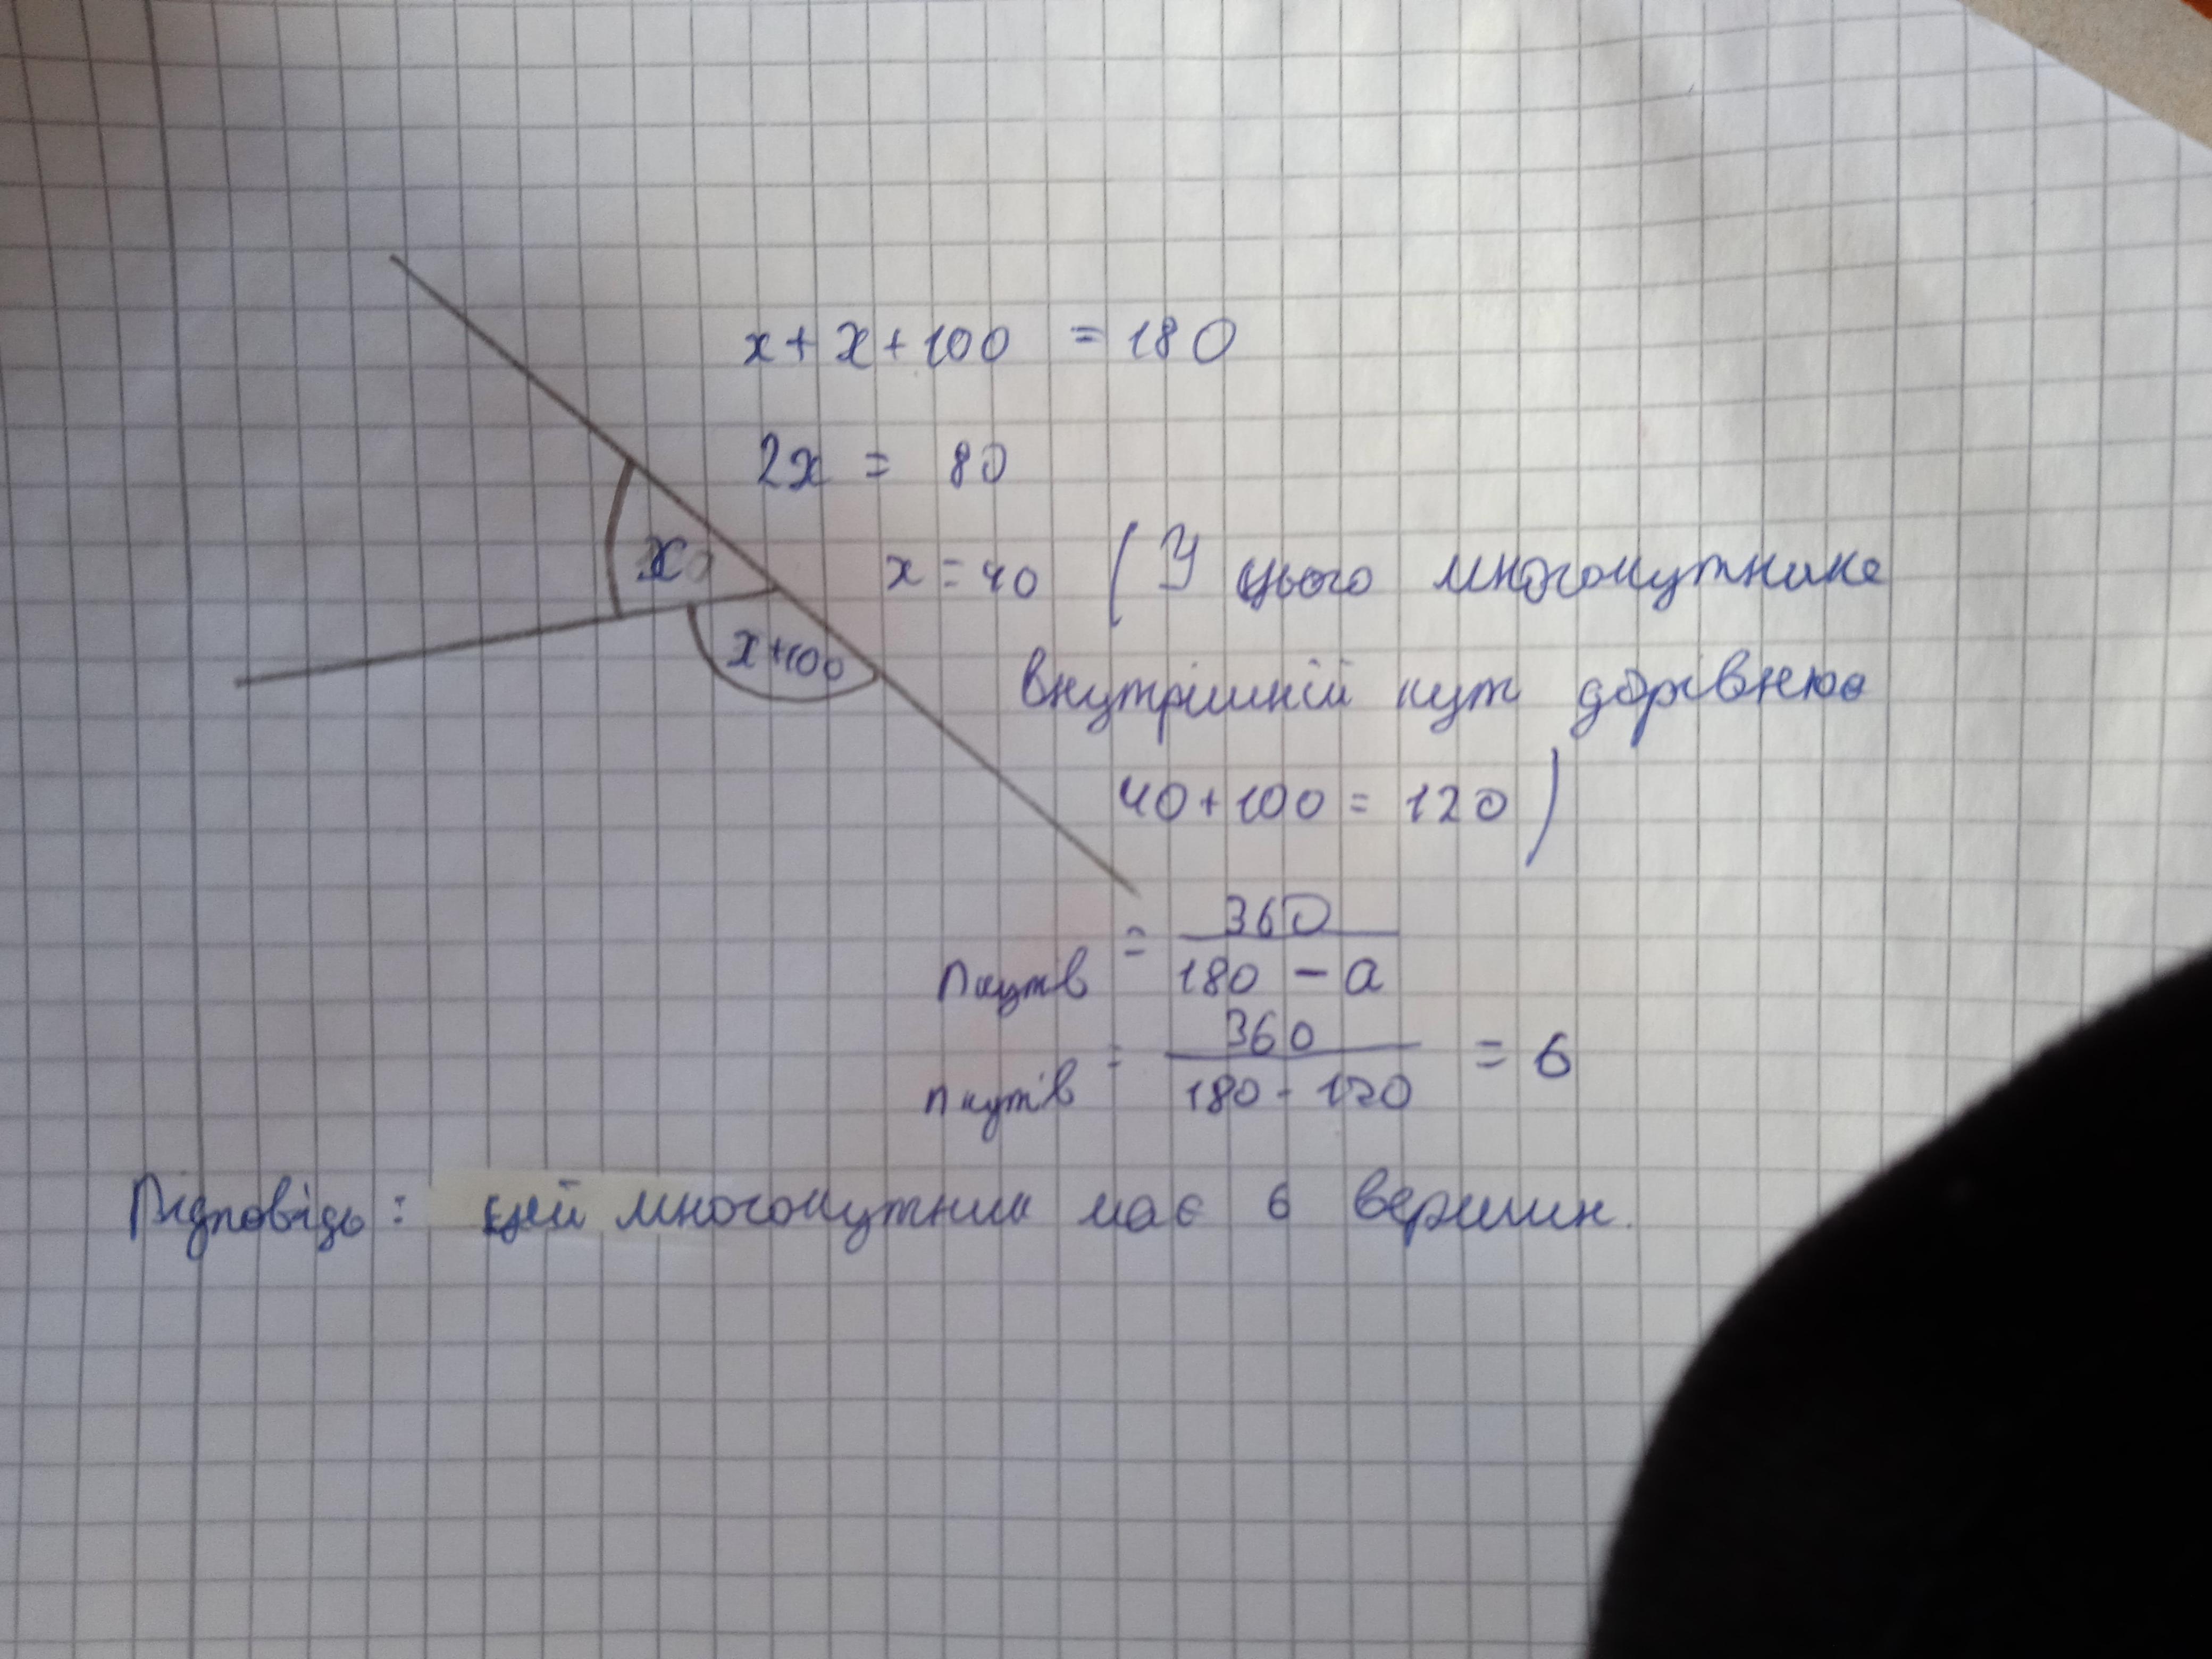 x + x + 100 = 180
2x = 80
x
x+100
x = 40 (У цього многокутника
внутрішній кут дорівнює
40 + 100 = 120)
n кутів = 360 / 180 - a
n кутів = 360 / 180 - 120 = 6
Відповідь: цей многокутник має 6 вершин.